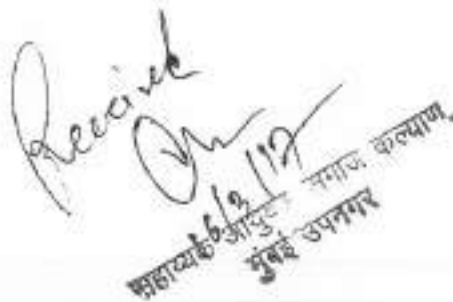 Received
16/3/17
सहाय्यक आयुक्त समाज कल्याण,
मुंबई उपनगर